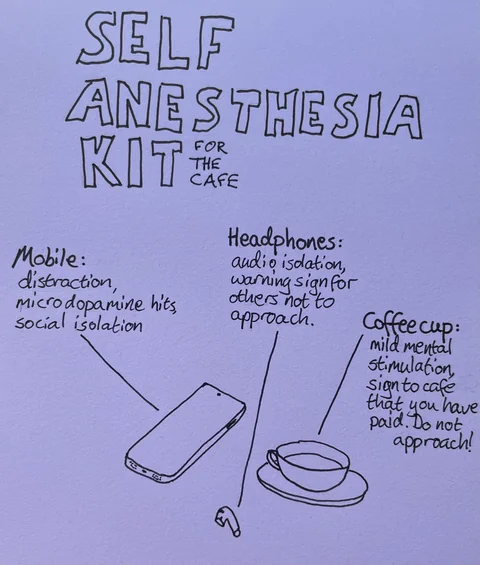 SELF
ANESTHESIA
KIT FOR
THE
CAFE
Mobile:
distraction,
microdopamine hits,
social isolation
Headphones:
audio isolation,
warning sign for
others not to
approach.
Coffee cup:
mild mental
stimulation,
sign to cafe
that you have
paid. Do not
approach!